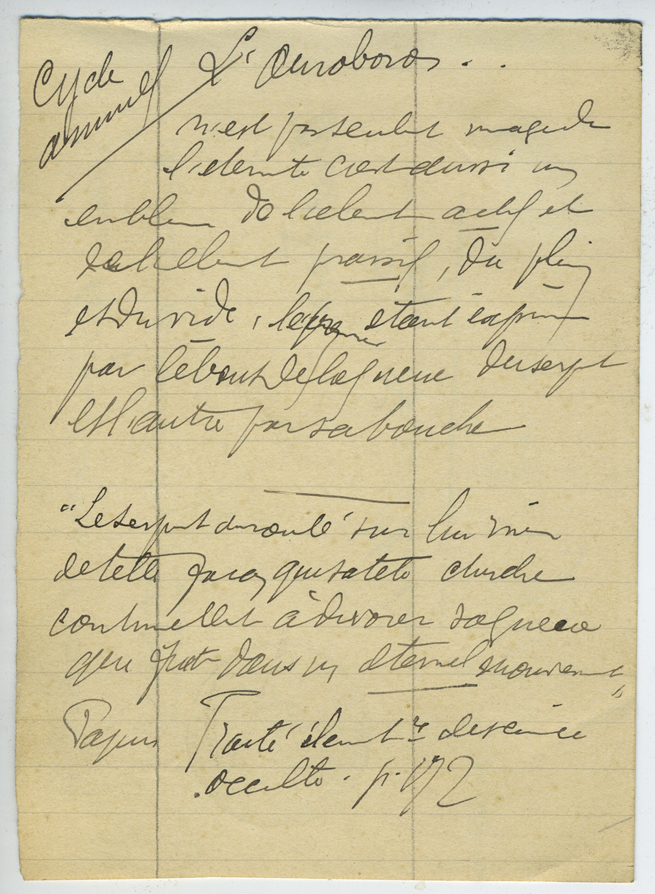 Cycle
annuel
L'Ouroboros . .
n'est pas seulet image de
l'éternité c'est aussi un
emblem de l'élent actif et
de l'élent passif, du plein
et du vide, le premier étant exprim
par le bout de la queue du serpt
et l'autre par sa bouche
"Le serpent enroulé sur lui même
de telle façon que sa tête cherche
continuellet à dévorer sa queue
qui fuit dans un éternel mouvement"
Papus Traité élémtre de science
occulte. p. 172